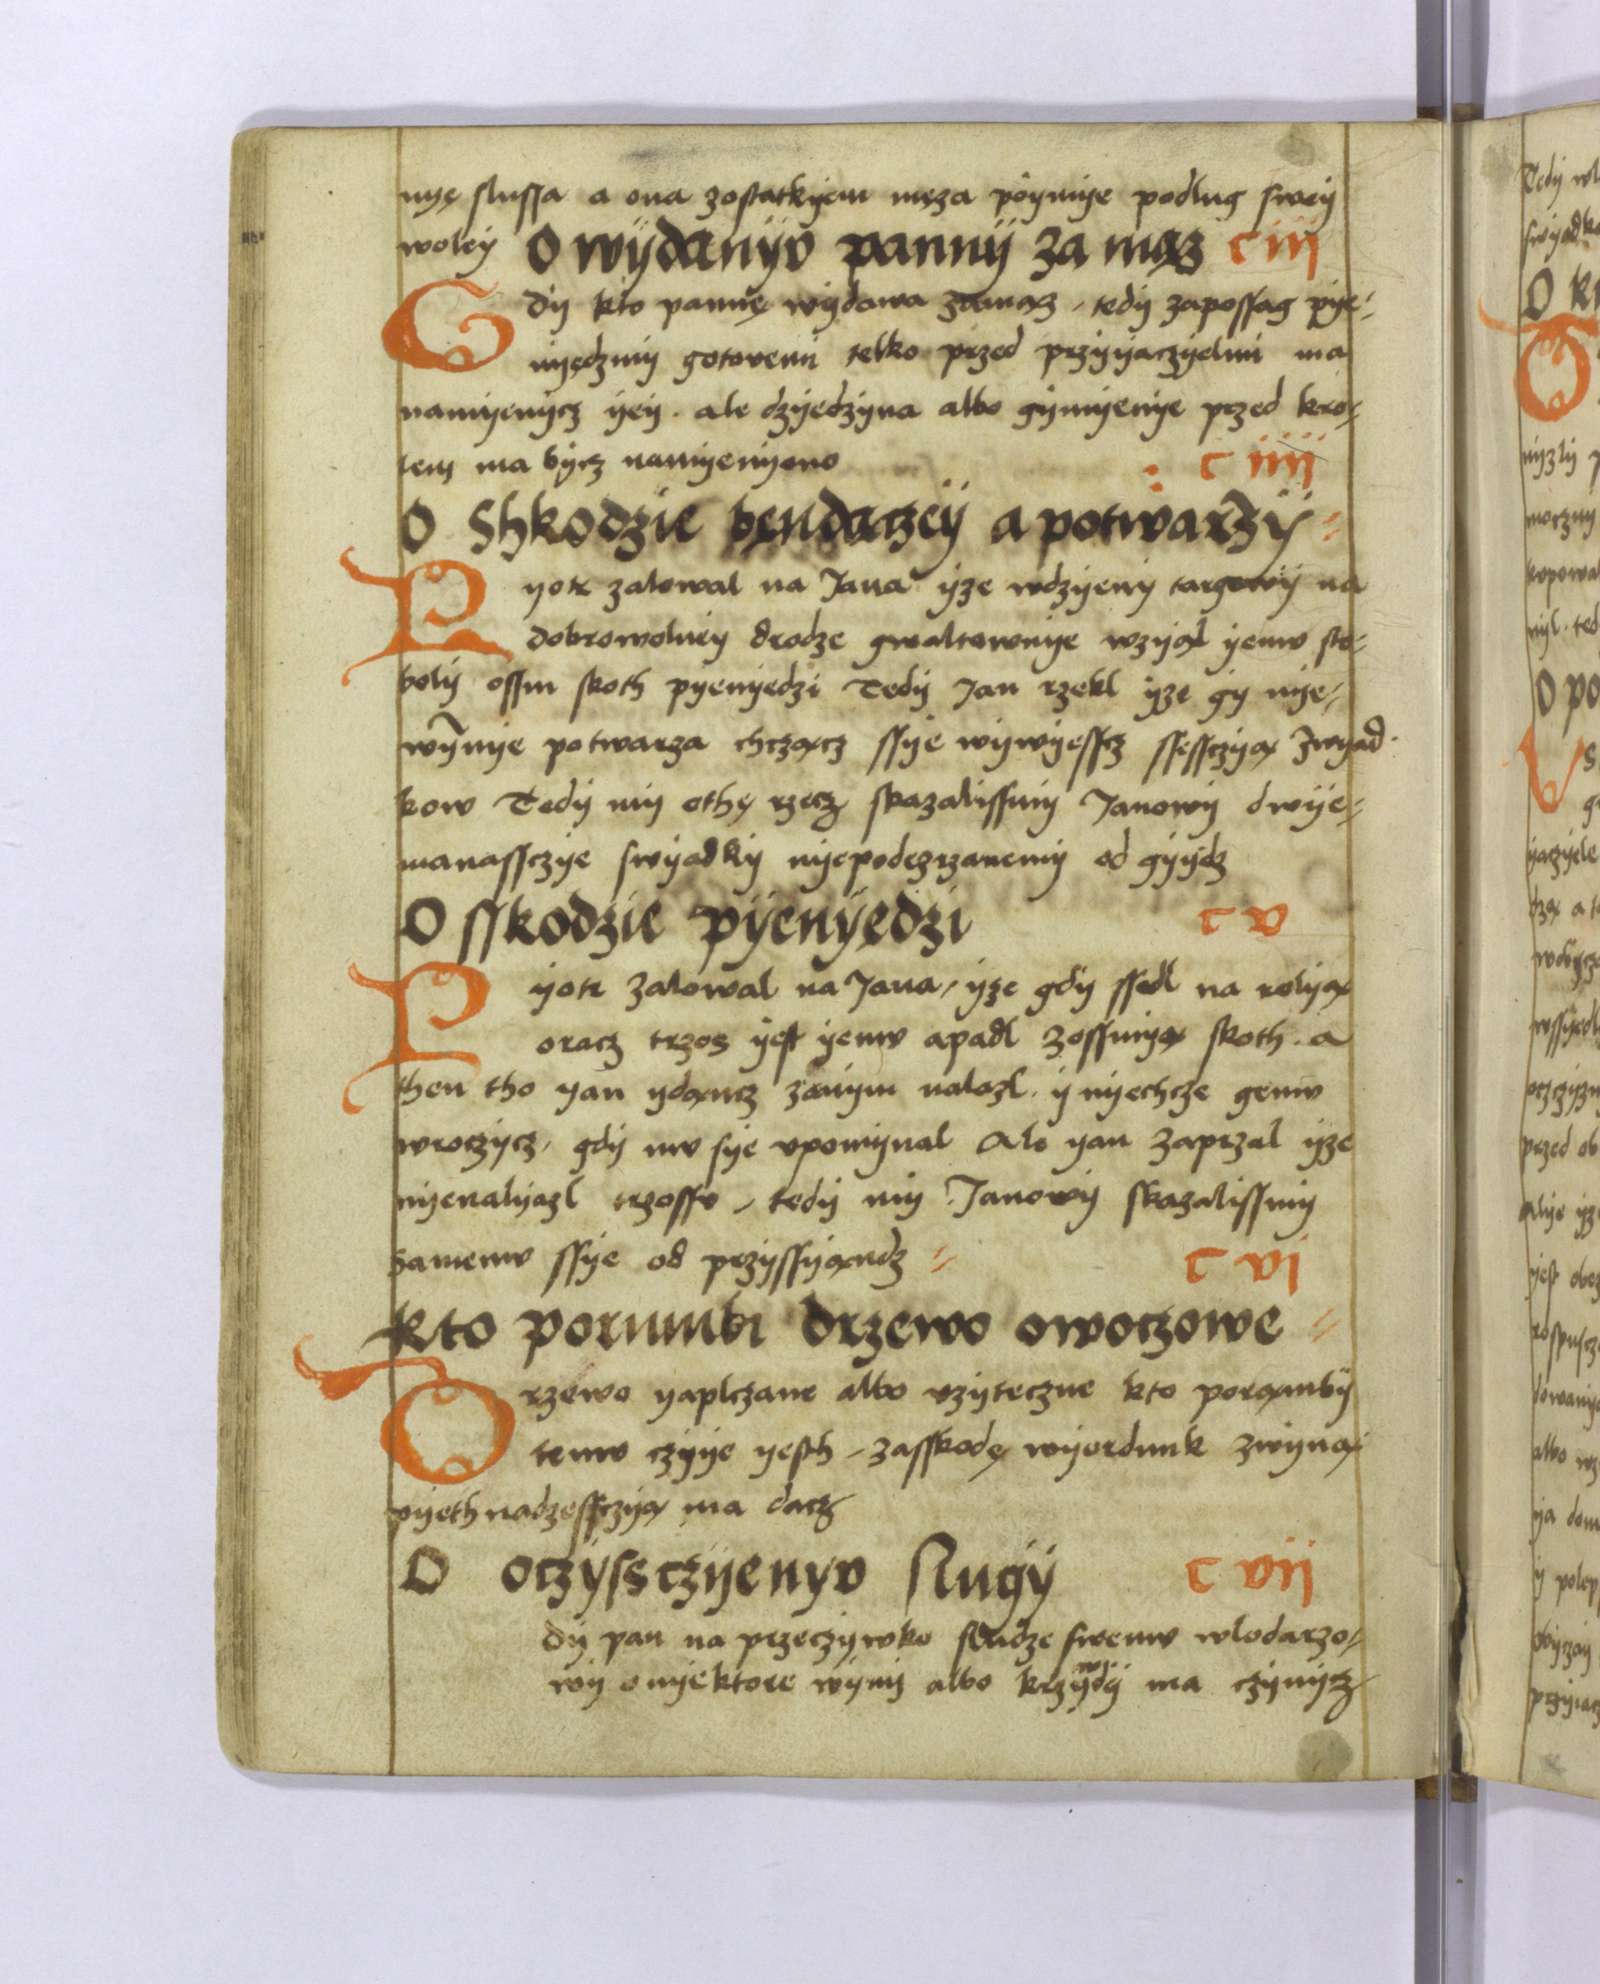 nyę slussa a ona zostatkyem męza poymye podlug swey
woley O wydanyv panny za mąz c iii
Gdy kto pannę wydawa zamąz, tedy zapossag pye-
nyędzmy gotovemi telko przed przyyaczyelmi ma
namyenycz yey. ale dzyedzyna albo gymyenye przed kro-
lem ma bycz namyenyono
c iiii
O Shkodzie bendaczey a potwarzy
Pyotr zalowal na Jana yze wdzyeny targowy na
dobrowolney drodze gwaltownye wzyąl yemv sto-
boly ossm skoth pyenyedzi Tedy Jan rzekl yze gy nye-
wynnye potwarza chcząc ssye wywyesscz ssesscząą Swyad
kow Tedy my othę rzecz skazalissmy Janowy dwye-
manassczye swyadky nyepodezrzanemy od gyydz
O sskodzie pyenyędzi c v
Pyotr zalowal na Jana, yze gdy ssedl na rolyą
oracz trzos yest yemv apadl zossmyą skoth. a
then tho yan ydąncz zanym nalazl. y nyechcze gemv
wroczycz, gdy mv sye vpomynal Ale yan zaprzal yze
nyenalyazl trzossv, tedy my Janowy skazalissmy
samemv ssye od przyssyąndz
c vi
kto porumbi drzewo owoczowe
Drzewo yaplczane albo vzyteczne kto porąmby
temv czyye yesth, zasskodę wyerdunk zwyną
pyethnadzesscząą ma dacz
O oczyssczyenyv slugy c vii
dy pan na przeczywko sludze swemv wlodarzo-
wy o nyektore wyny albo krzywdy ma czynycz